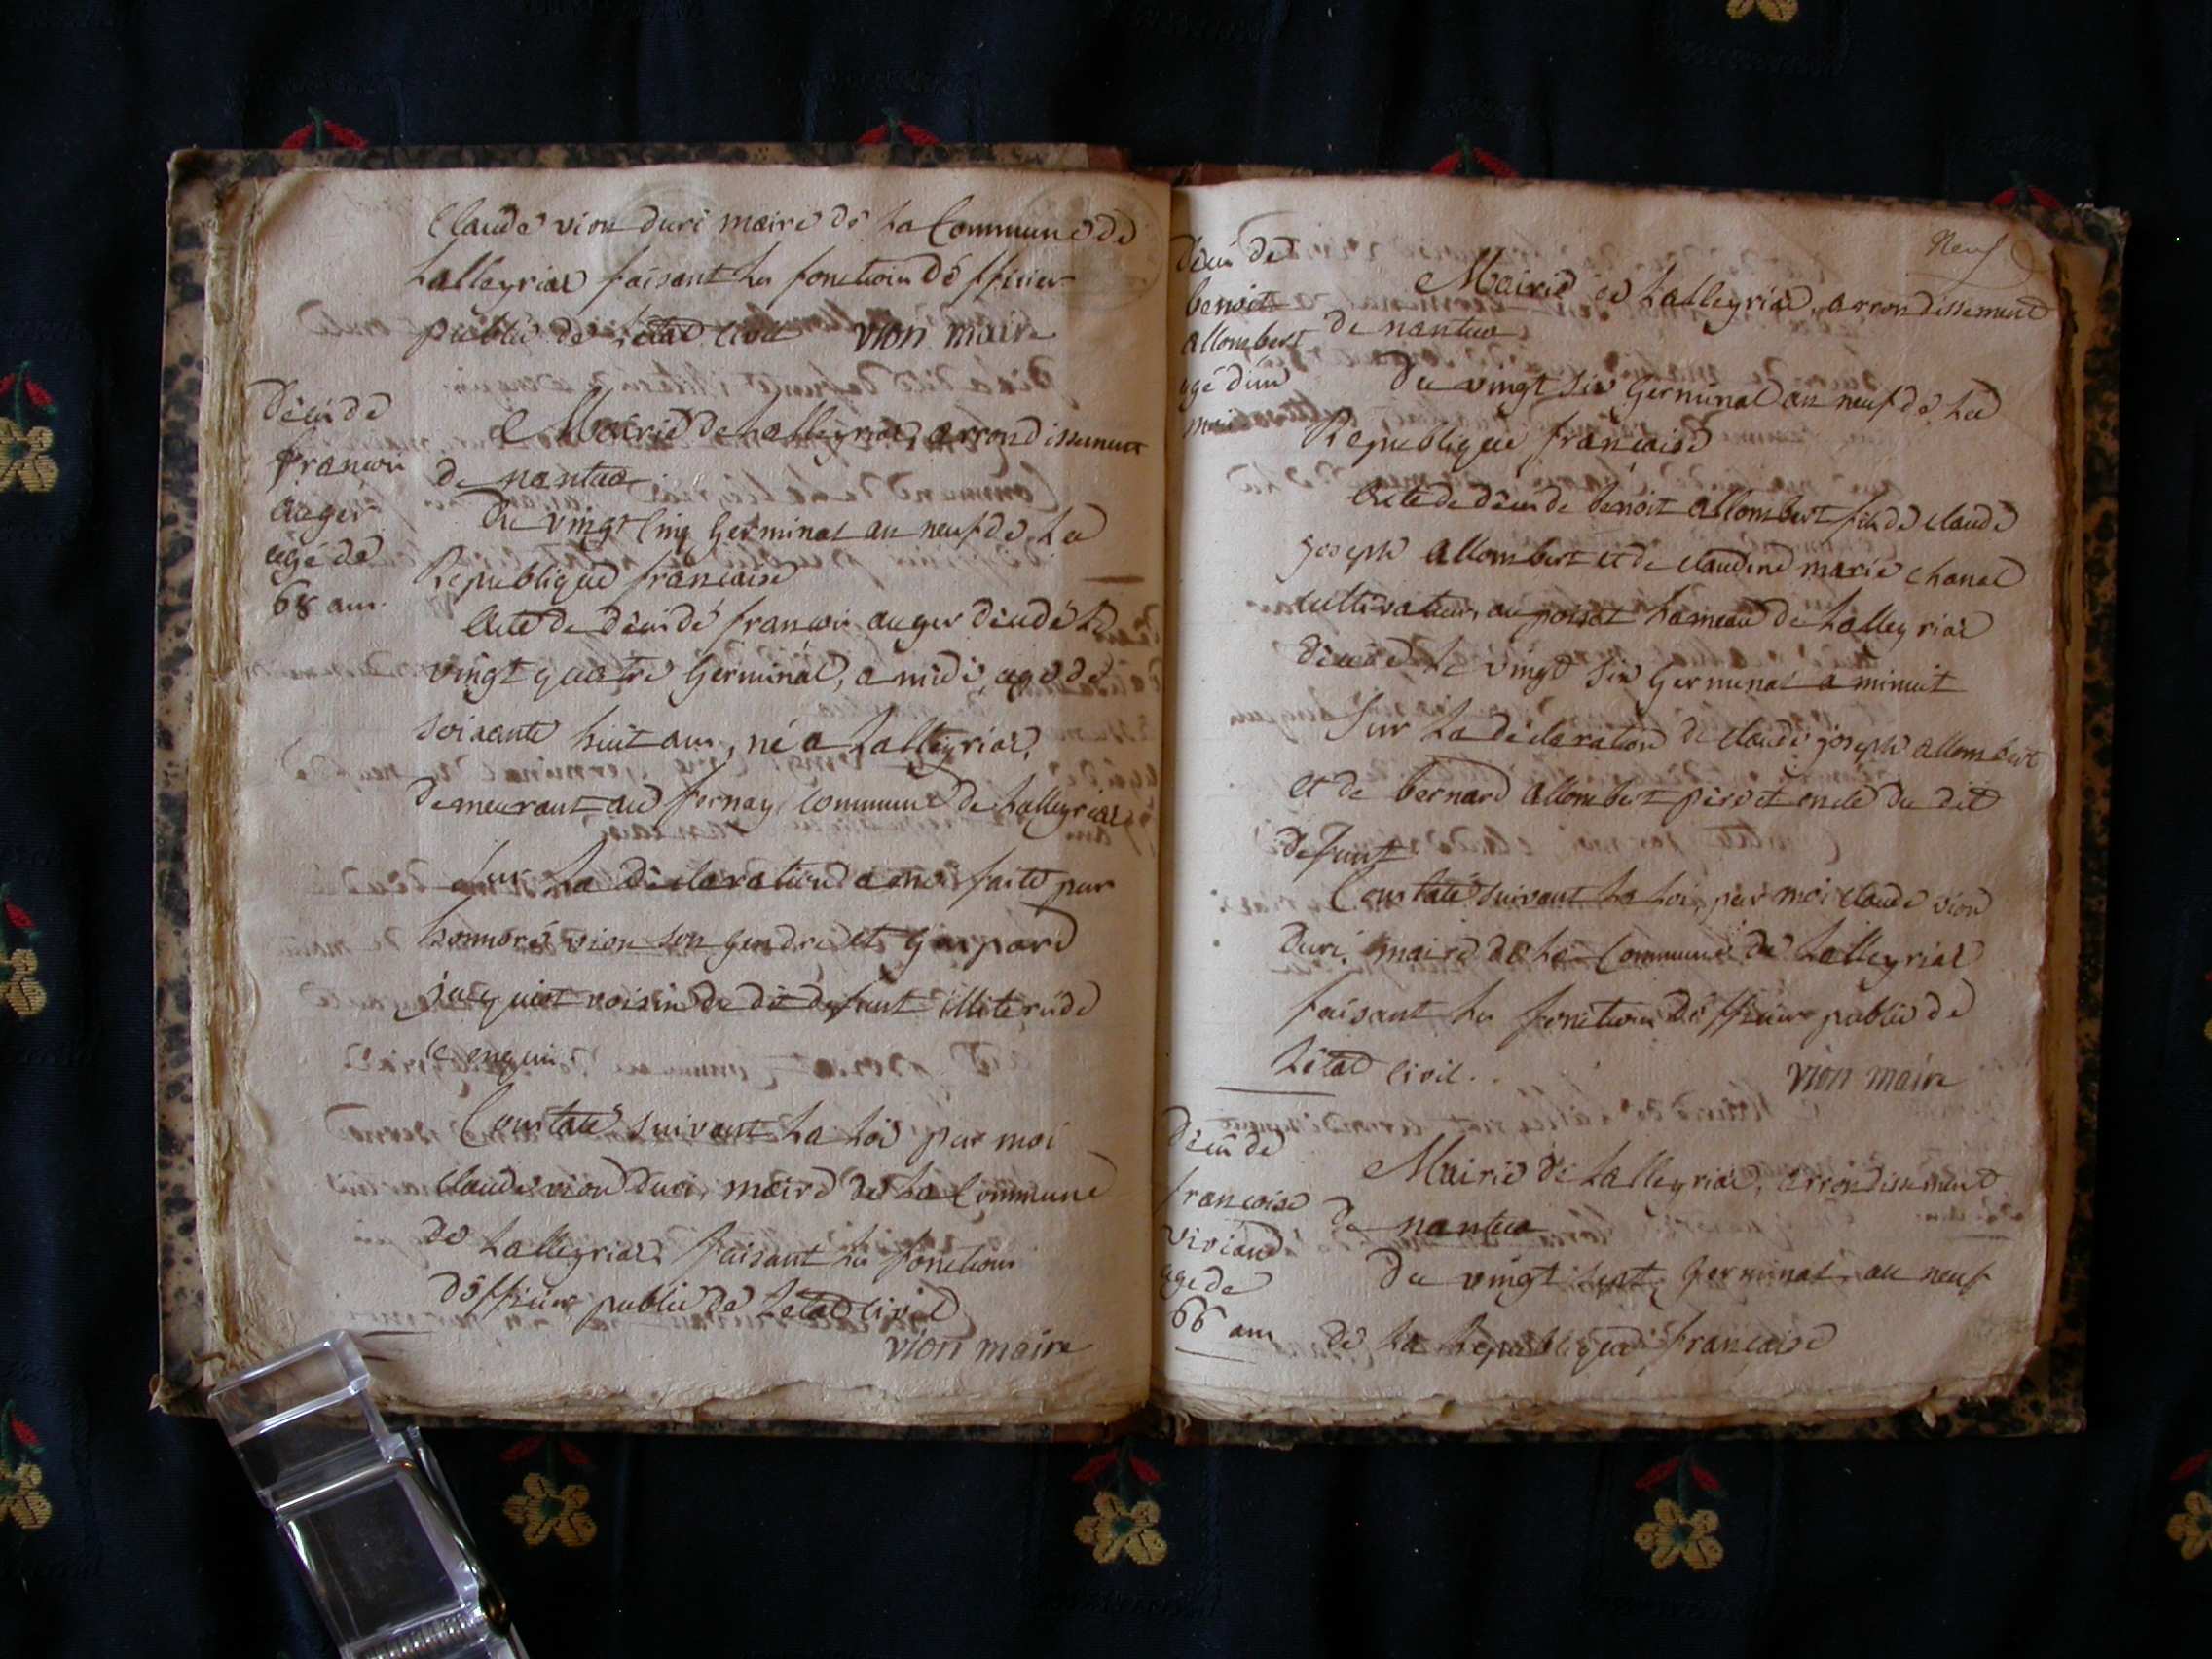 Claude vion duri maire de la Commune de
Lalleyriat faisant les fonctions dofficier
public de letat civil vion maire
décès de
francois
auger
agé de
68 ans.
Mairie de Lalleyriat, arrondissement
de nantua
du vingt cinq Germinal an neuf de La
Republique francaise
Acte de décès de francois auger décédé Le
vingt quatre Germinal, a midi, agé de
soixante huit ans, né a Lalleyriat,
demeurant au fornay commune de Lalleyriat
sur La déclaration a moi faite par
honnoré vion son gendre et Gaspard
jacquiot voisin de dit defunt
Constaté suivant La Loi par moi
Claude vion duri, maire de La Commune
de Lalleyriat faisant les fonctions
dofficier public de Letat civil
vion maire
Neuf
décès de
benoit
allombert
agé dun
mois
Mairie de Lalleyriat, arrondissement
de nantua
du vingt six Germinal an neuf de La
Republique francaise
Acte de décès de benoit allombert fils de claude
joseph allombert et de claudine marie chanel
cultivateurs, au poisat hameau de Lalleyriat
décédé Le vingt six Germinal a minuit
Sur La déclaration de claude joseph allombert
et de bernard allombert pere et oncle du dit
defunt
Constaté suivant La Loi, par moi claude vion
duri, maire de La Commune de Lalleyriat
faisant les fonctions dofficier public de
Letat civil.. vion maire
décès de
francoise
viviand
agé de
66 ans
Mairie de Lalleyriat, arrondissement
de nantua
du vingt sept Germinal an neuf
de La Republique francaise